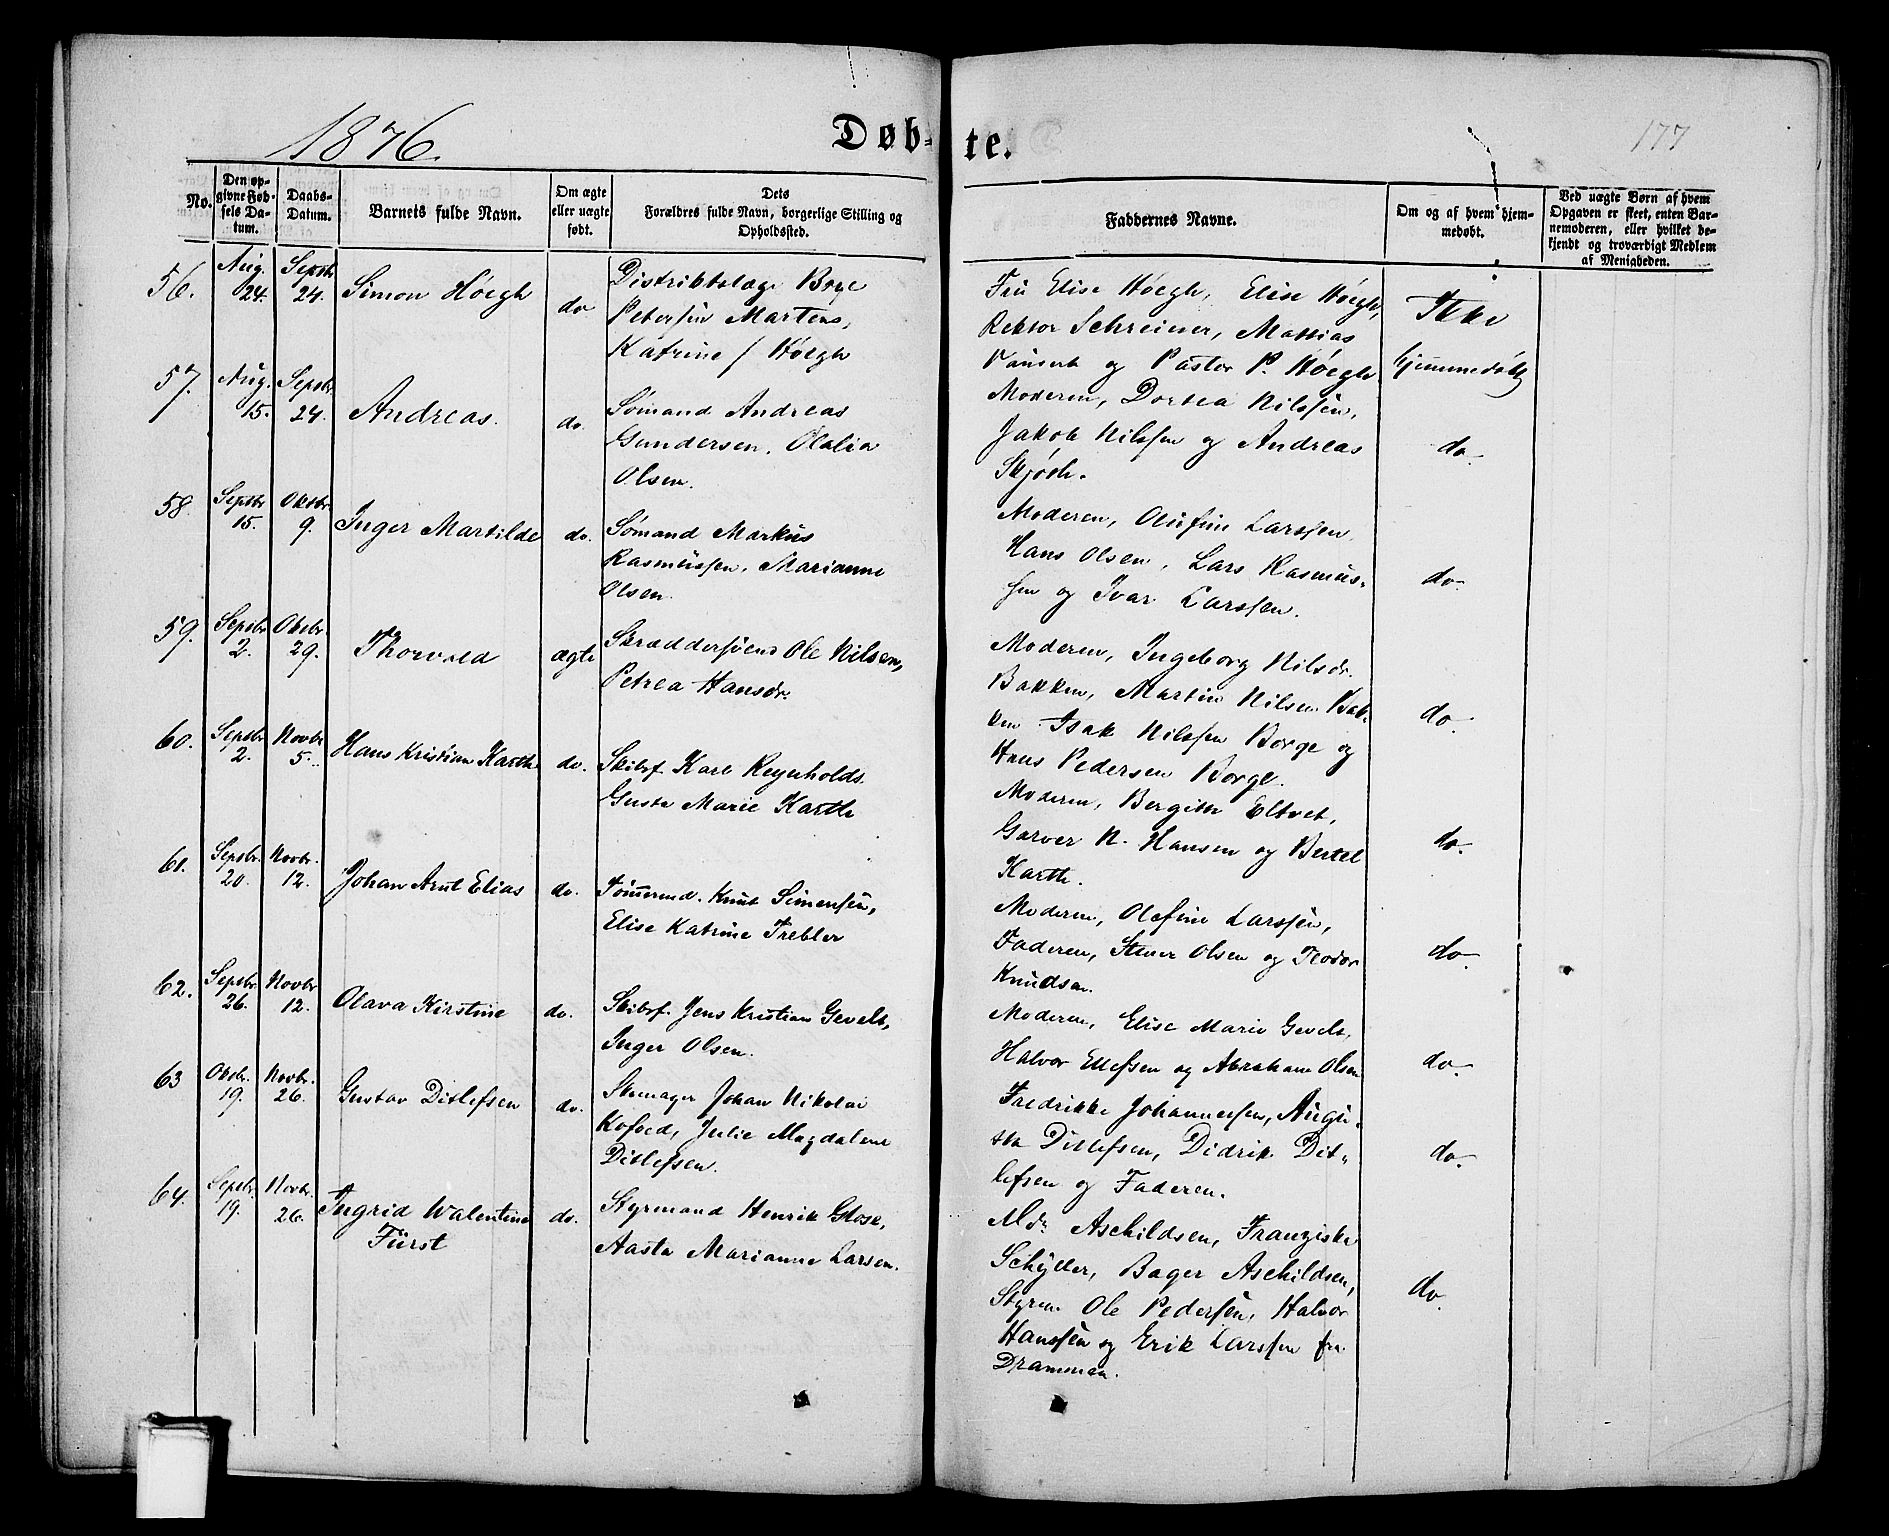 1876.
Døb-
te.
177
No.
Den op-
givne Fød-
sels Da-
tum.
Daabs-
Datum.
Barnets fulde Navn.
Om ægte
eller uægte
født.
Dets
Forældres fulde Navn, borgerlige Stilling og
Opholdssted.
Faddernes Navne.
Om og af hvem hjem-
medøbt.
Ved uægte Børn af hvem
Opgaven er skeet, enten Bar-
nemoderen, eller hvilket be-
kjendt og troværdigt Medlem
af Menigheden.
56.
Aug.
24.
Septbr
24.
Simon Höegh
do
Distriktslæge Boye
Petersen Martens,
Katrine f Höegh
Fru Elise Höegh, Elise Höegh,
Rektor Schreiner, Mattias
og Pastor P. Höegh
Ikke
hjemmedøbt
57.
Aug.
15.
Septbr
24.
Andreas.
do.
Sømand Andreas
Gundersen, Olalia
Olsen.
Moderen, Dortea Nilssen,
Jakob Nilssen og Andreas
Skjöth.
do.
58.
Septbr
15.
Oktbr
9.
Inger Martilde
do.
Sømand Markus
Rasmussen, Marianne
Olsen.
Moderen, Olufine Larssen
Hans Olsen, Lars Rasmus-
sen og Ivar Larssen.
do.
59.
Septbr
2.
Oktbr.
29.
Thorvald
ægte
Skræddersvend Ole Nilsen,
Petrea Hansdr.
Moderen, Ingeborg Nilsdr.
Bakken, Martin Nilsen Bak-
ken Isak Nilssen Borge og
Hans Pedersen Borge.
do.
60.
Septbr
2.
Novbr
5.
Hans Kristian Karth
do.
Skibsf. Karl Reynholds
Gusta Marie Karth
Moderen, Bergitte Eltvet,
Garver N. Hansen og Bertel
Karth.
do.
61.
Septbr.
20.
Novbr.
12.
Johan Arnt Elias
do.
Tømmermd. Knut Simensen,
Elise Katrine Trebler
Moderen, Olefine Larssen,
Faderen, Stener Olsen og Teodor
Knudsen.
do.
62.
Septbr.
26.
Novbr
12.
Olava Kirstine
do.
Skibsf. Jens Kristian Gevelt,
Inger Olsen.
Moderen, Elise Marie Gevelt,
Halvor Ellefsen og Abraham Olsen
do.
63
Oktbr.
19.
Novbr.
26.
Gustav Ditlefsen
do.
Skomager Johan Nikolai
Kofoed, Julie Magdalene
Ditlefsen.
Fredrikke Johannessen, Augu-
sta Ditlefsen, Didrik Dit-
lefsen og Faderen.
do.
64.
Septbr.
19.
Novbr.
26.
Ingrid Walentine
Fürst
do.
Styrmand Henrik Glose,
Aasta Marianne Larsen.
Mdm Aschildsen, Franziska
Schyller, Bager Aschildsen,
Styrm. Ole Pedersen, Halvor
Hanssen og Erik Larssen fra
Drammen.
do.